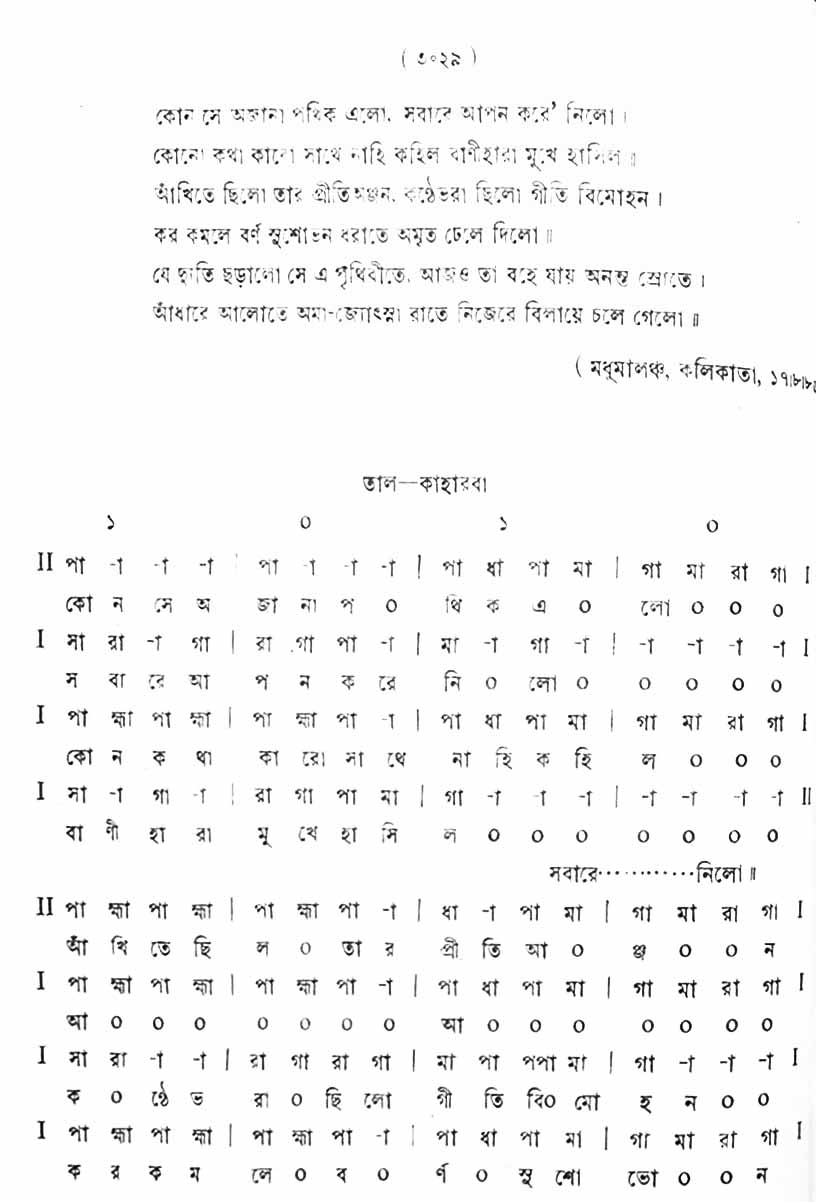 ( ৩০২৯ )
কোন সে অজানা পথিক এলো, সবারে আপন করে' নিলো।
কোনো কথা কারো সাথে নাহি কহিল বাণীহারা মুখে হাসিল॥
আঁখিতে ছিলো তার প্রীতিঅঞ্জন, কণ্ঠেভরা ছিলো গীতি বিমোহন।
কর কমলে বর্ণ সুশোভন ধরাতে অমৃত ঢেলে দিলো॥
যে দ্যুতি ছড়ালো সে এ পৃথিবীতে, আজও তা বহে যায় অনন্ত স্রোতে।
আঁধারে আলোতে অমা-জ্যোৎস্না রাতে নিজেরে বিলায়ে চলে গেলো॥
( মধুমালঞ্চ, কলিকাতা, ১৭।৮।৮
তাল—কাহারবা
১ ০ ১ ০
II পা -া -া -া | পা -া -া -া | পা ধা পা মা | গা মা রা গা I
কো ন সে অ জা না প ০ থি ক এ ০ লো ০ ০ ০
I সা রা -া গা | রা গা পা -া | মা -া গা -া | -া -া -া -া I
স বা রে আ প ন ক রে নি ০ লো ০ ০ ০ ০ ০
I পা হ্মা পা হ্মা | পা হ্মা পা -া | পা ধা পা মা | গা মা রা গা I
কো ন ক থা কা রো সা থে না হি ক হি ল ০ ০ ০
I সা -া গা -া | রা গা পা মা | গা -া -া -া | -া -া -া -া II
বা ণী হা রা মু খে হা সি ল ০ ০ ০ ০ ০ ০ ০
সবারে············নিলো॥
II পা হ্মা পা হ্মা | পা হ্মা পা -া | ধা -া পা মা | গা মা রা গা I
আঁ খি তে ছি ল ০ তা র প্রী তি আ ০ ঞ্জ ০ ০ ন
I পা হ্মা পা হ্মা | পা হ্মা পা -া | পা ধা পা মা | গা মা রা গা I
আ ০ ০ ০ ০ ০ ০ ০ আ ০ ০ ০ ০ ০ ০ ০
I সা রা -া -া | রা গা রা গা | মা পা পপা মা | গা -া -া -া I
ক ০ ণ্ঠে ভ রা ০ ছি লো গী তি বি০ মো হ ন ০ ০
I পা হ্মা পা হ্মা | পা হ্মা পা -া | পা ধা পা মা | গা মা রা গা I
ক র ক ম লে ০ ব ০ র্ণ ০ সু শো ভো ০ ০ ন